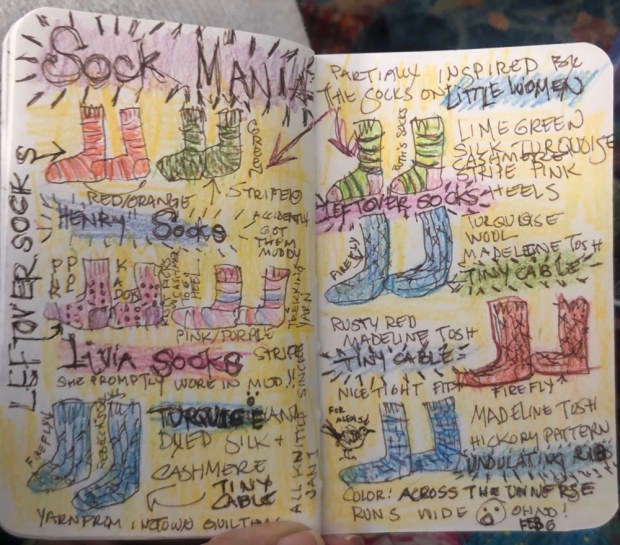 SOCK MANIA
RED/ORANGE
STRIPED
LEFTOVER SOCKS
HENRY SOCKS
ACCIDENTLY
GOT
THEM
MUDDY
HEEL
PINK/PURPLE
STRIPE
TREKKING
YARN
LIVIA SOCKS
SHE PROMPTLY WORE IN MUD!!
FIREFLY
TURQUOISE HAND
DYED SILK +
CASHMERE
TINY
CABLE
YARN FROM INTOWN QUILTING
ALL KNITTED SINCE
JAN 1
PARTIALLY INSPIRED BY
THE SOCKS ON LITTLE WOMEN
RUTH'S SOCKS
LIME GREEN
SILK TURQUOISE
CASHMERE
STRIPE PINK
HEELS
LEFTOVER SOCKS
FIREFLY
TURQUOISE
WOOL
MADELINE TOSH
TINY CABLE
RUSTY RED
MADELINE TOSH
TINY CABLE
NICE TIGHT FIT
FIREFLY
FOR
MADELINE TOSH
HICKORY PATTERN
UNDULATING RIB
COLOR: ACROSS THE UNIVERSE
RUNS WIDE OH NO!
FEB 6